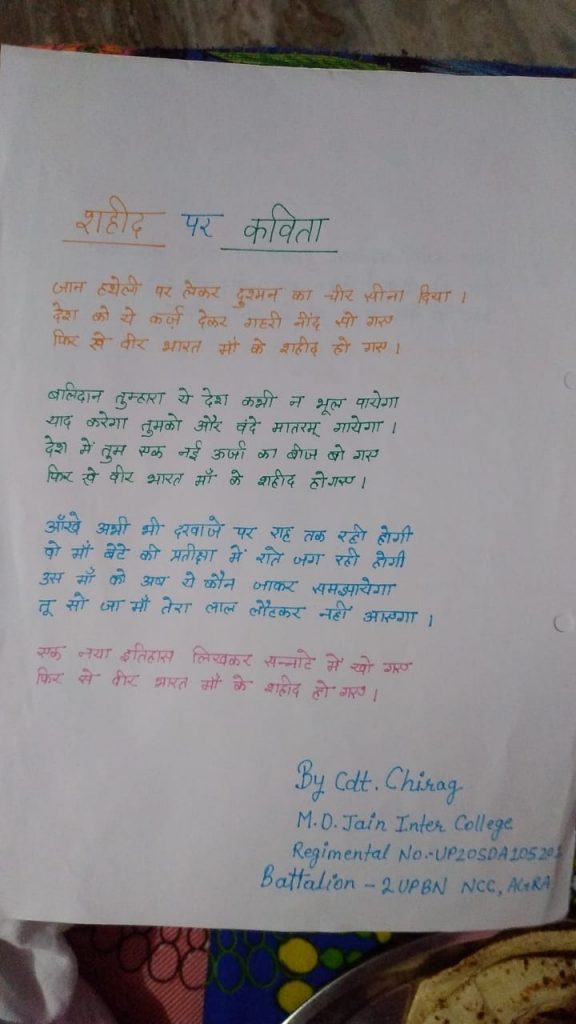 शहीद पर कविता
जान हथेली पर लेकर दुश्मन का चीर सीना दिया।
देश को ये कर्ज देकर गहरी नींद सो गए
फिर से वीर भारत माँ के शहीद हो गए।
बलिदान तुम्हारा ये देश कभी न भूल पायेगा
याद करेगा तुमको और वंदे मातरम् गायेगा।
देश में तुम एक नई ऊर्जा का बीज बो गए
फिर से वीर भारत माँ के शहीद होगए।
आँखे अभी भी दरवाजे पर राह तक रही होगी
वो माँ बेटे की प्रतीक्षा में राते जग रही होगी
उस माँ को अब ये कौन जाकर समझायेगा
तू सो जा माँ तेरा लाल लौटकर नहीं आएगा।
एक नया इतिहास लिखकर सन्नाटे में खो गए
फिर से वीर भारत माँ के शहीद हो गए।
By Cdt. Chirag
M.D. Jain Inter College
Regimental No.-
Battalion - 2UPBN NCC, AGRA